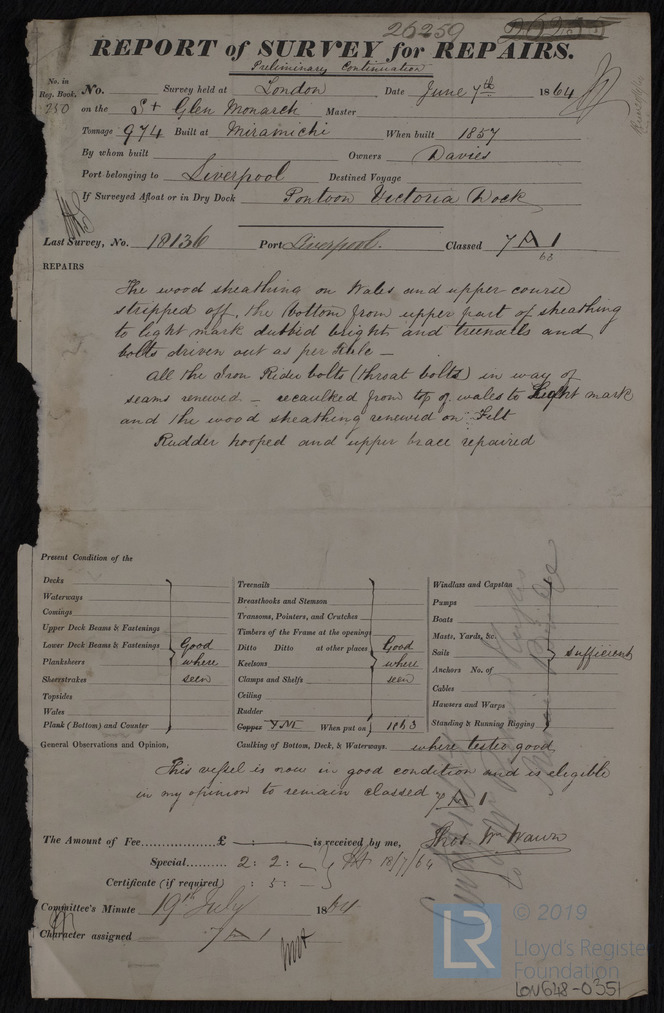 26259
REPORT of SURVEY for REPAIRS.
Preliminary Continuation
No. in Reg. Book.
250
No. Survey held at London Date June 7th 1864
on the St Glen Monarch Master
Tonnage 974 Built at Miramichi When built 1857
By whom built Owners Davies
Port belonging to Liverpool Destined Voyage
If Surveyed Afloat or in Dry Dock Pontoon Victoria Dock
Last Survey, No. 18136 Port Liverpool. Classed 7 A 1
63
REPAIRS
The wood sheathing on Wales and upper course
stripped off, the bottom from upper part of sheathing
to light mark dubbed bright and treenails and
bolts driven out as per Rule —
All the Iron Rider bolts (throat bolts) in way of
seams renewed — recaulked from top of wales to Light mark
and the wood sheathing renewed on Felt
Rudder hooped and upper brace repaired
Present Condition of the
Decks
Waterways
Comings
Upper Deck Beams & Fastenings
Lower Deck Beams & Fastenings
Planksheers
Sheerstrakes
Topsides
Wales
Plank (Bottom) and Counter
Good
where
seen
Treenails
Breasthooks and Stemson
Transoms, Pointers, and Crutches
Timbers of the Frame at the openings
Ditto Ditto at other places
Keelsons
Clamps and Shelfs
Ceiling
Rudder
Copper YM When put on 1863
Good
where
seen
Windlass and Capstan
Pumps
Boats
Masts, Yards, &c.
Sails
Anchors No. of
Cables
Hawsers and Warps
Standing & Running Rigging
sufficient
General Observations and Opinion, Caulking of Bottom, Deck, & Waterways. where tested good
This vessel is now in good condition and is eligible
in my opinion to remain classed 7 A 1
The Amount of Fee £ — : — : — is received by me, Thos Wm Wawn
Special 2 : 2 : —
18/7/64
Certificate (if required) : 5 : —
Committee's Minute 19th July 1864
Character assigned 7 A 1
© 2019
Lloyd's Register
Foundation
LR
LON648-0351